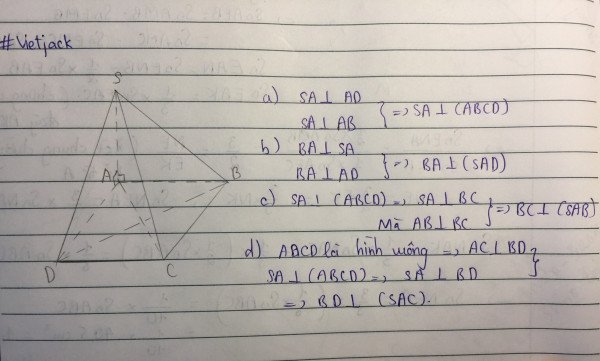 #Vietjack
S
A
B
D
C
a) SA ⊥ AD
SA ⊥ AB
} => SA ⊥ (ABCD)
b) BA ⊥ SA
BA ⊥ AD
} => BA ⊥ (SAD)
c) SA ⊥ (ABCD) => SA ⊥ BC
Mà AB ⊥ BC
} => BC ⊥ (SAB)
d) ABCD là hình vuông => AC ⊥ BD
SA ⊥ (ABCD) => SA ⊥ BD }
=> BD ⊥ (SAC).